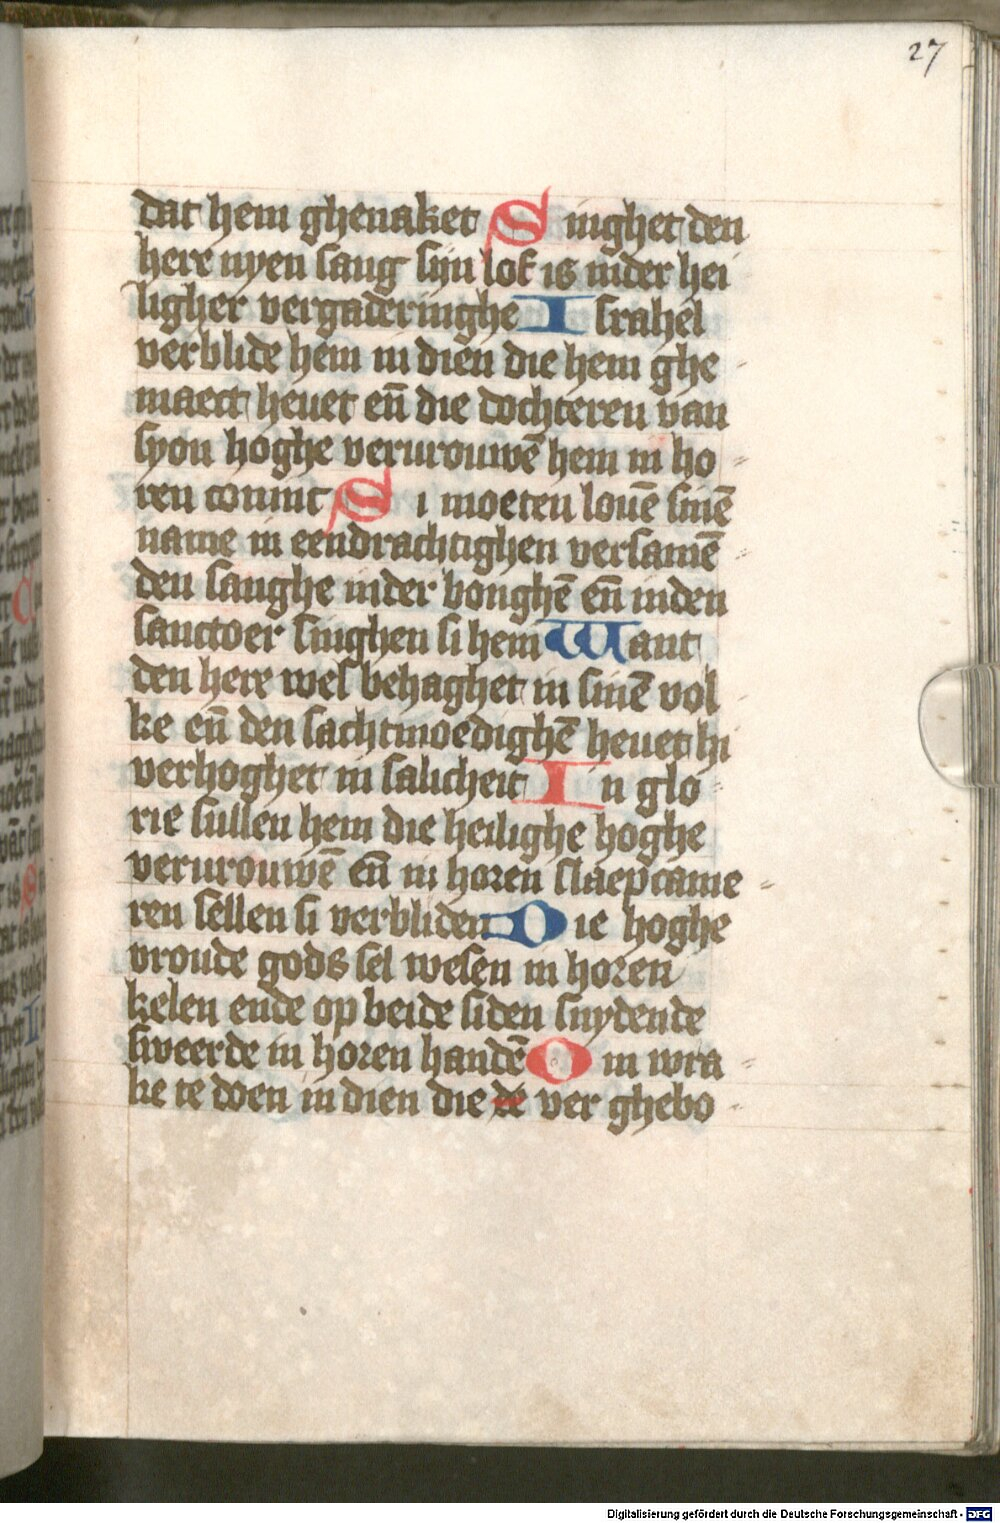 27
dat hem ghenaket Singhet den
here nyen sang sijn lof is inder hei
ligher vergaderinghe Israhel
verblide hem in dien die hem ghe
maect heuet en̄ die dochteren van
syon hoghe verurouwē hem in ho
ren coninc Si moeten louē sinē
name in eendrachtighen versamē
den sanghe inder bonghē en̄ inden
sanctoer singhen si hem Want
den here wel behaghet in sinē vol
ke en̄ den sachtmoedighē heuet hi
verhoghet in salicheit In glo
rie sullen hem die heilighe hoghe
verurouwē en̄ in horen slaepcame
ren sellen si verbliden Die hoghe
vroude gods sel wesen in horen
kelen ende op beide siden snydende
sweerde in horen handē Om wra
ke te doen in dien die de ver ghebo
Digitalisierung gefördert durch die Deutsche Forschungsgemeinschaft - DFG